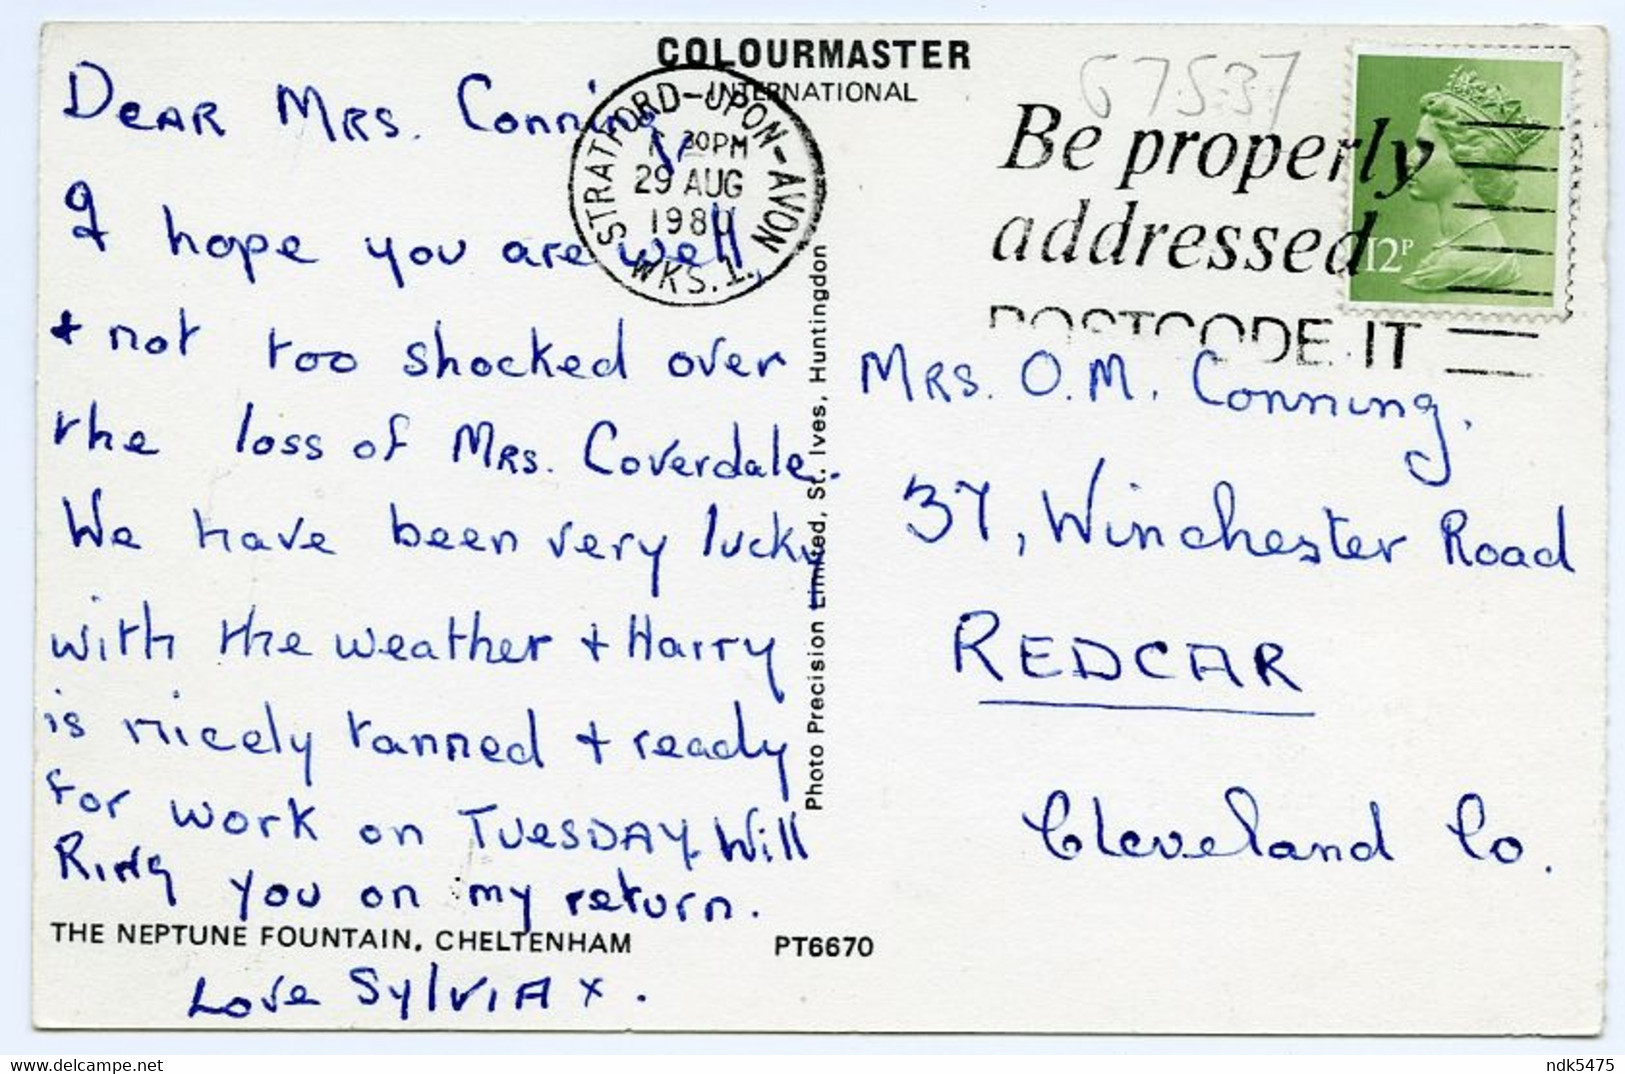 COLOURMASTER
INTERNATIONAL
67537
STRATFORD-UPON-AVON
30PM
29 AUG
1980
WKS. 1.
Be properly
addressed
POSTCODE IT
12P
Dear Mrs. Conning,
I hope you are well,
+ not too shocked over
the loss of Mrs. Coverdale.
We have been very lucky
with the weather + Harry
is nicely tanned + ready
for work on TUESDAY. Will
Ring you on my return.
THE NEPTUNE FOUNTAIN, CHELTENHAM
PT6670
Love SYLVIA x.
Photo Precision Limited, St. Ives, Huntingdon
Mrs. O.M. Conning,
37, Winchester Road
REDCAR
Cleveland Co.
https://www.delcampe.net
ndk5475